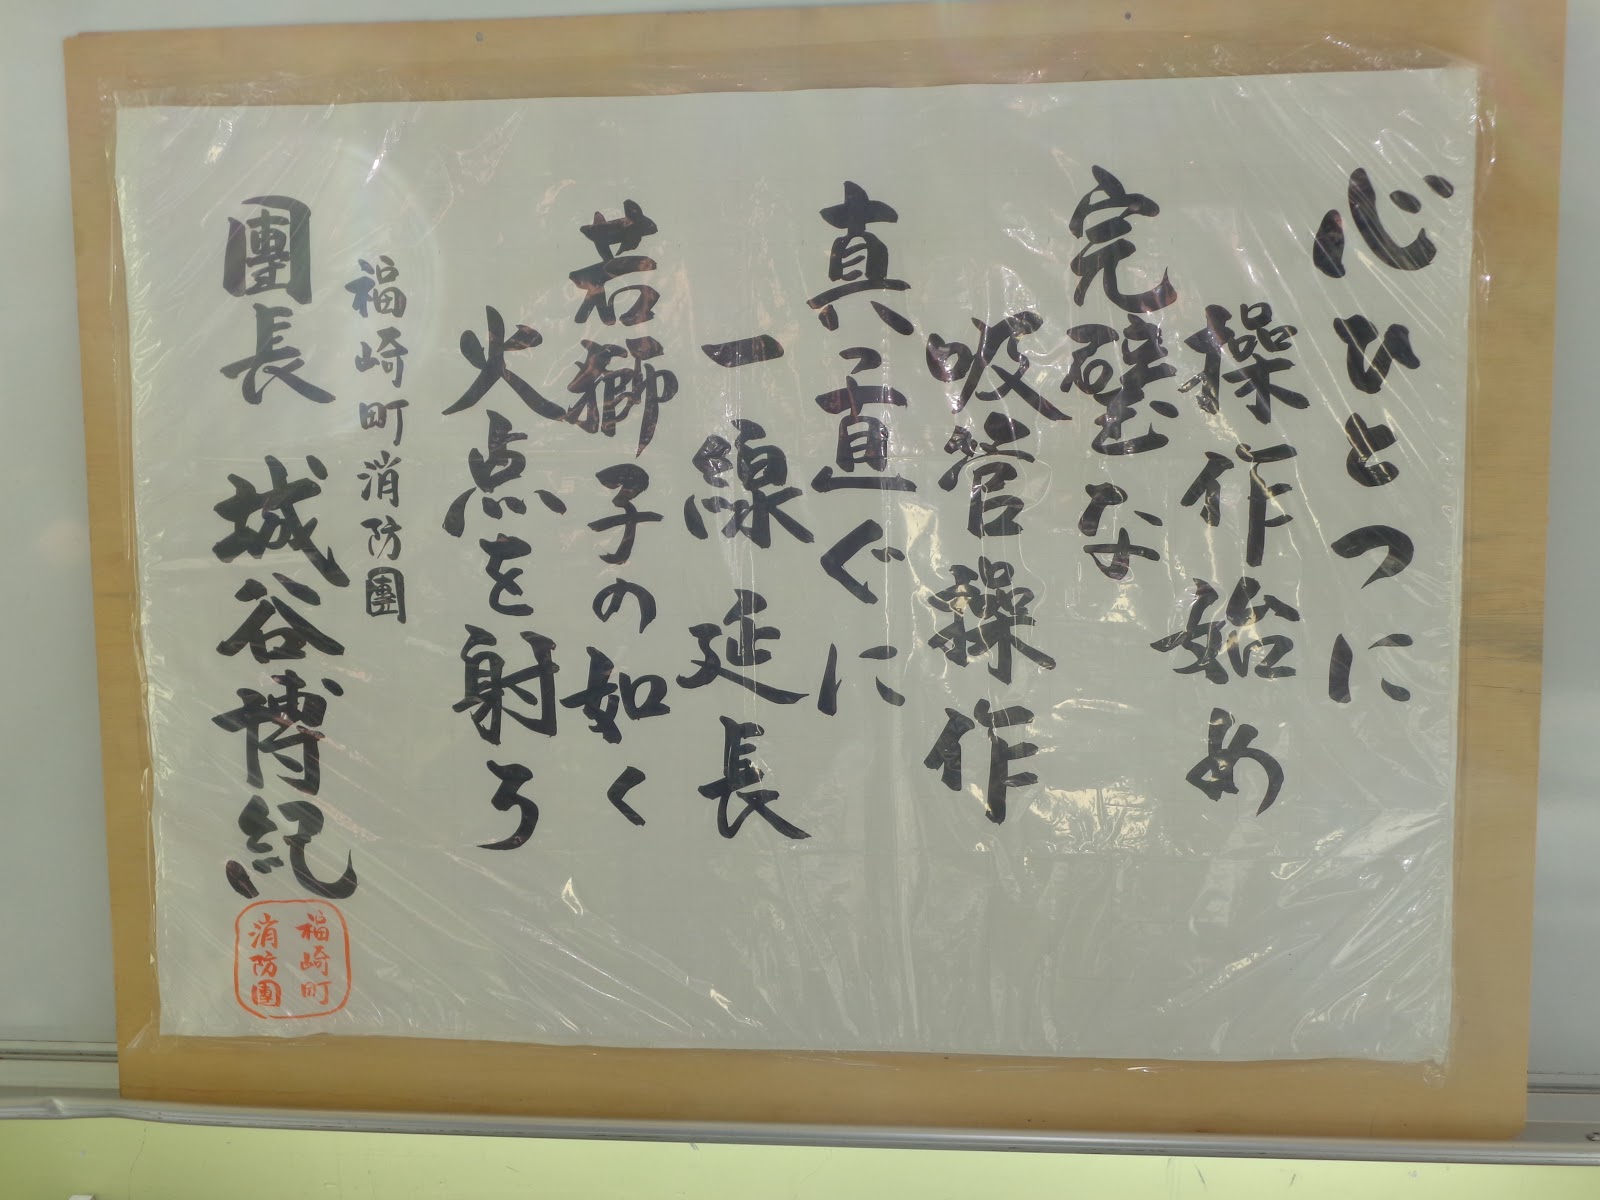 心ひとつに
操作始め
完璧な
吸管操作
真っ直ぐに
一線延長
若獅子の如く
火点を射ろ
福崎町消防團
團長 城谷博紀
福崎町
消防團